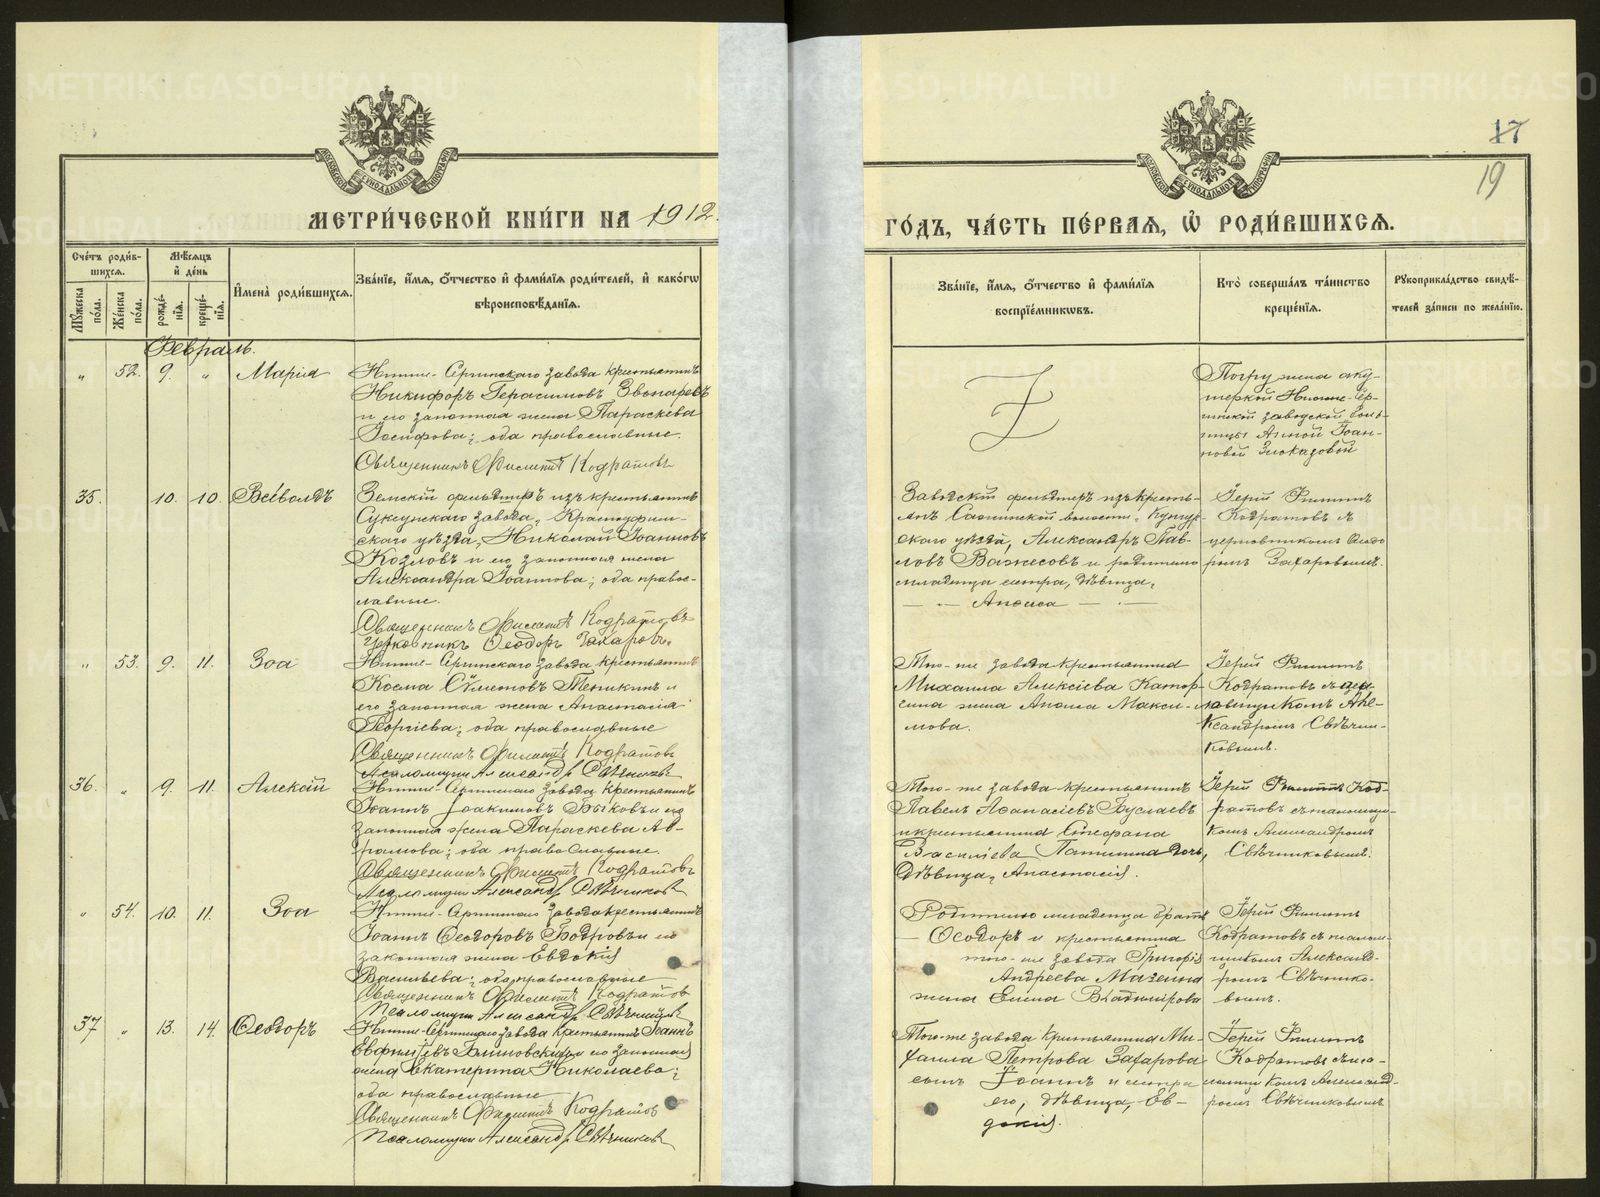 METRIKI.GASO-URAL.RU
17
19
МОСКОВСКОЙ СѴНОДАЛЬНОЙ ТИПОГРАФІИ
МЕТРИ́ЧЕСКОЙ КНИ́ГИ НА 1912.
ГО́ДЪ, ЧА́СТЬ ПЕ́РВАЯ, Ѡ҆ РОДИ́ВШИХСЯ.
Сче́тъ роди́в-
шихся.
Мꙋ́жеска по́ла.
Же́нска по́ла.
Мѣ́сяцъ и҆ де́нь
рожде́-
нія.
креще́-
нія.
И҆мена̀ роди́вшихся.
Зва́ніе, и҆́мя, ѻ҆́тчество и҆ фами́лія роди́телей, и҆ како́гѡ
вѣроисповѣ́данія.
Зва́ніе, и҆́мя, ѻ҆́тчество и҆ фами́лія
воспріе́мникѡвъ.
Кто̀ соверша́лъ та́инство
креще́нія.
Рꙋкоприкла́дство свидѣ́-
телей за́писи по жела́нію.
Февраль.
„ 52. 9. „ Марія
Нижне-Сергинскаго завода крестьянинъ
Никифоръ Герасимовъ Звонаревъ
и его законная жена Параскева
Іосифова; оба православные.
Священникъ Филиппъ Кодратовъ
Погружена аку-
шеркой Нижне-Сер-
гинской заводской боль-
ницы Анной Іоан-
новой Злоказовой
35. 10. 10. Всеволодъ
Земскій фельдшеръ изъ крестьянъ
Суксунскаго завода, Красноуфим-
скаго уѣзда, Николай Іоанновъ
Козловъ и его законная жена
Александра Іоаннова; оба право-
славные.
Священникъ Филиппъ Кодратовъ
Церковникъ Ѳеодоръ Захаровъ.
Заводскій фельдшеръ изъ кресть-
янъ волости, Кунгур-
скаго уѣзда, Александръ Пав-
ловъ и родителю
младенца сестра, дѣвица,
Анѳиса
Іерей Филиппъ
Кодратовъ съ
церковникомъ Ѳеодо-
ромъ Захаровымъ.
„ 53. 9. 11. Зоа
Нижне-Сергинскаго завода крестьянинъ
Косма Симеоновъ Тенигинъ и
его законная жена Анастасія
Георгіева; оба православные
Священникъ Филиппъ Кодратовъ
Псаломщикъ Александръ Свѣчниковъ
Того-же завода крестьянина
Михаила Алексіева
жена Макси-
мова.
Іерей Филиппъ
Кодратовъ съ пса-
ломщикомъ Але-
ксандромъ Свѣчни-
ковымъ.
36. „ 9. 11. Алексій
Нижне-Сергинскаго завода крестьянинъ
Іоаннъ Іоакимовъ Быковъ и его
законная жена Параскева Ав-
рамова; оба православные.
Священникъ Филиппъ Кодратовъ
Псаломщикъ Александръ Свѣчниковъ
Того-же завода крестьянинъ
Павелъ Аѳанасіевъ Буслаевъ
и крестьянина Стефана
Василіева дочь,
дѣвица, Анастасія.
Іерей Филиппъ Код-
ратовъ съ псаломщи-
комъ Александромъ
Свѣчниковымъ.
„ 54. 10. 11. Зоа
Нижне-Сергинскаго завода крестьянинъ
Іоаннъ Ѳеодоровъ Бобровъ и его
законная жена Евдокія
Васильева; оба православные
Священникъ Филиппъ Кодратовъ
Псаломщикъ Александръ Свѣчниковъ
Родителю младенца братъ
Ѳеодоръ и крестьянина
того-же завода Григорія
Андреева Мазеина
жена Елена Владимірова
Іерей Филиппъ
Кодратовъ съ псалом-
щикомъ Александ-
ромъ Свѣчнико-
вымъ.
37 „ 13. 14. Ѳеодоръ
Нижне-Сергинскаго завода крестьянинъ Іоаннъ
Евфиміевъ и его законная
жена Екатерина Николаева;
оба православные
Священникъ Филиппъ Кодратовъ
Псаломщикъ Александръ Свѣчниковъ
Того-же завода крестьянина Ми-
хаила Петрова Захарова
сынъ Іоаннъ и сестра
его, дѣвица, Ев-
докія.
Іерей Филиппъ
Кодратовъ съ пса-
ломщикомъ Александ-
ромъ Свѣчниковымъ